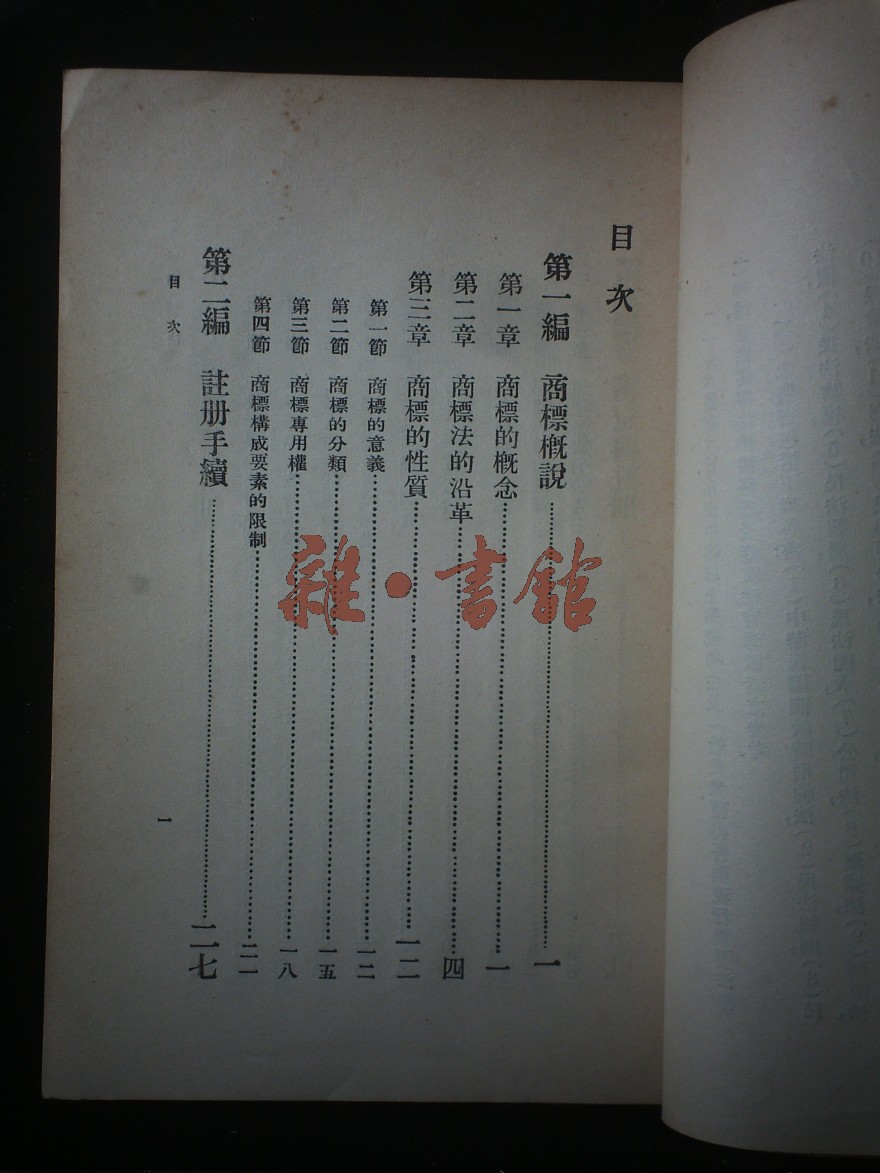 目次
第一編 商標概說……一
第一章 商標的概念……一
第二章 商標法的沿革……四
第三章 商標的性質……一二
第一節 商標的意義……一二
第二節 商標的分類……一五
第三節 商標專用權……一八
第四節 商標構成要素的限制……二一
第二編 註册手續……二七
目次
一
雜·書館